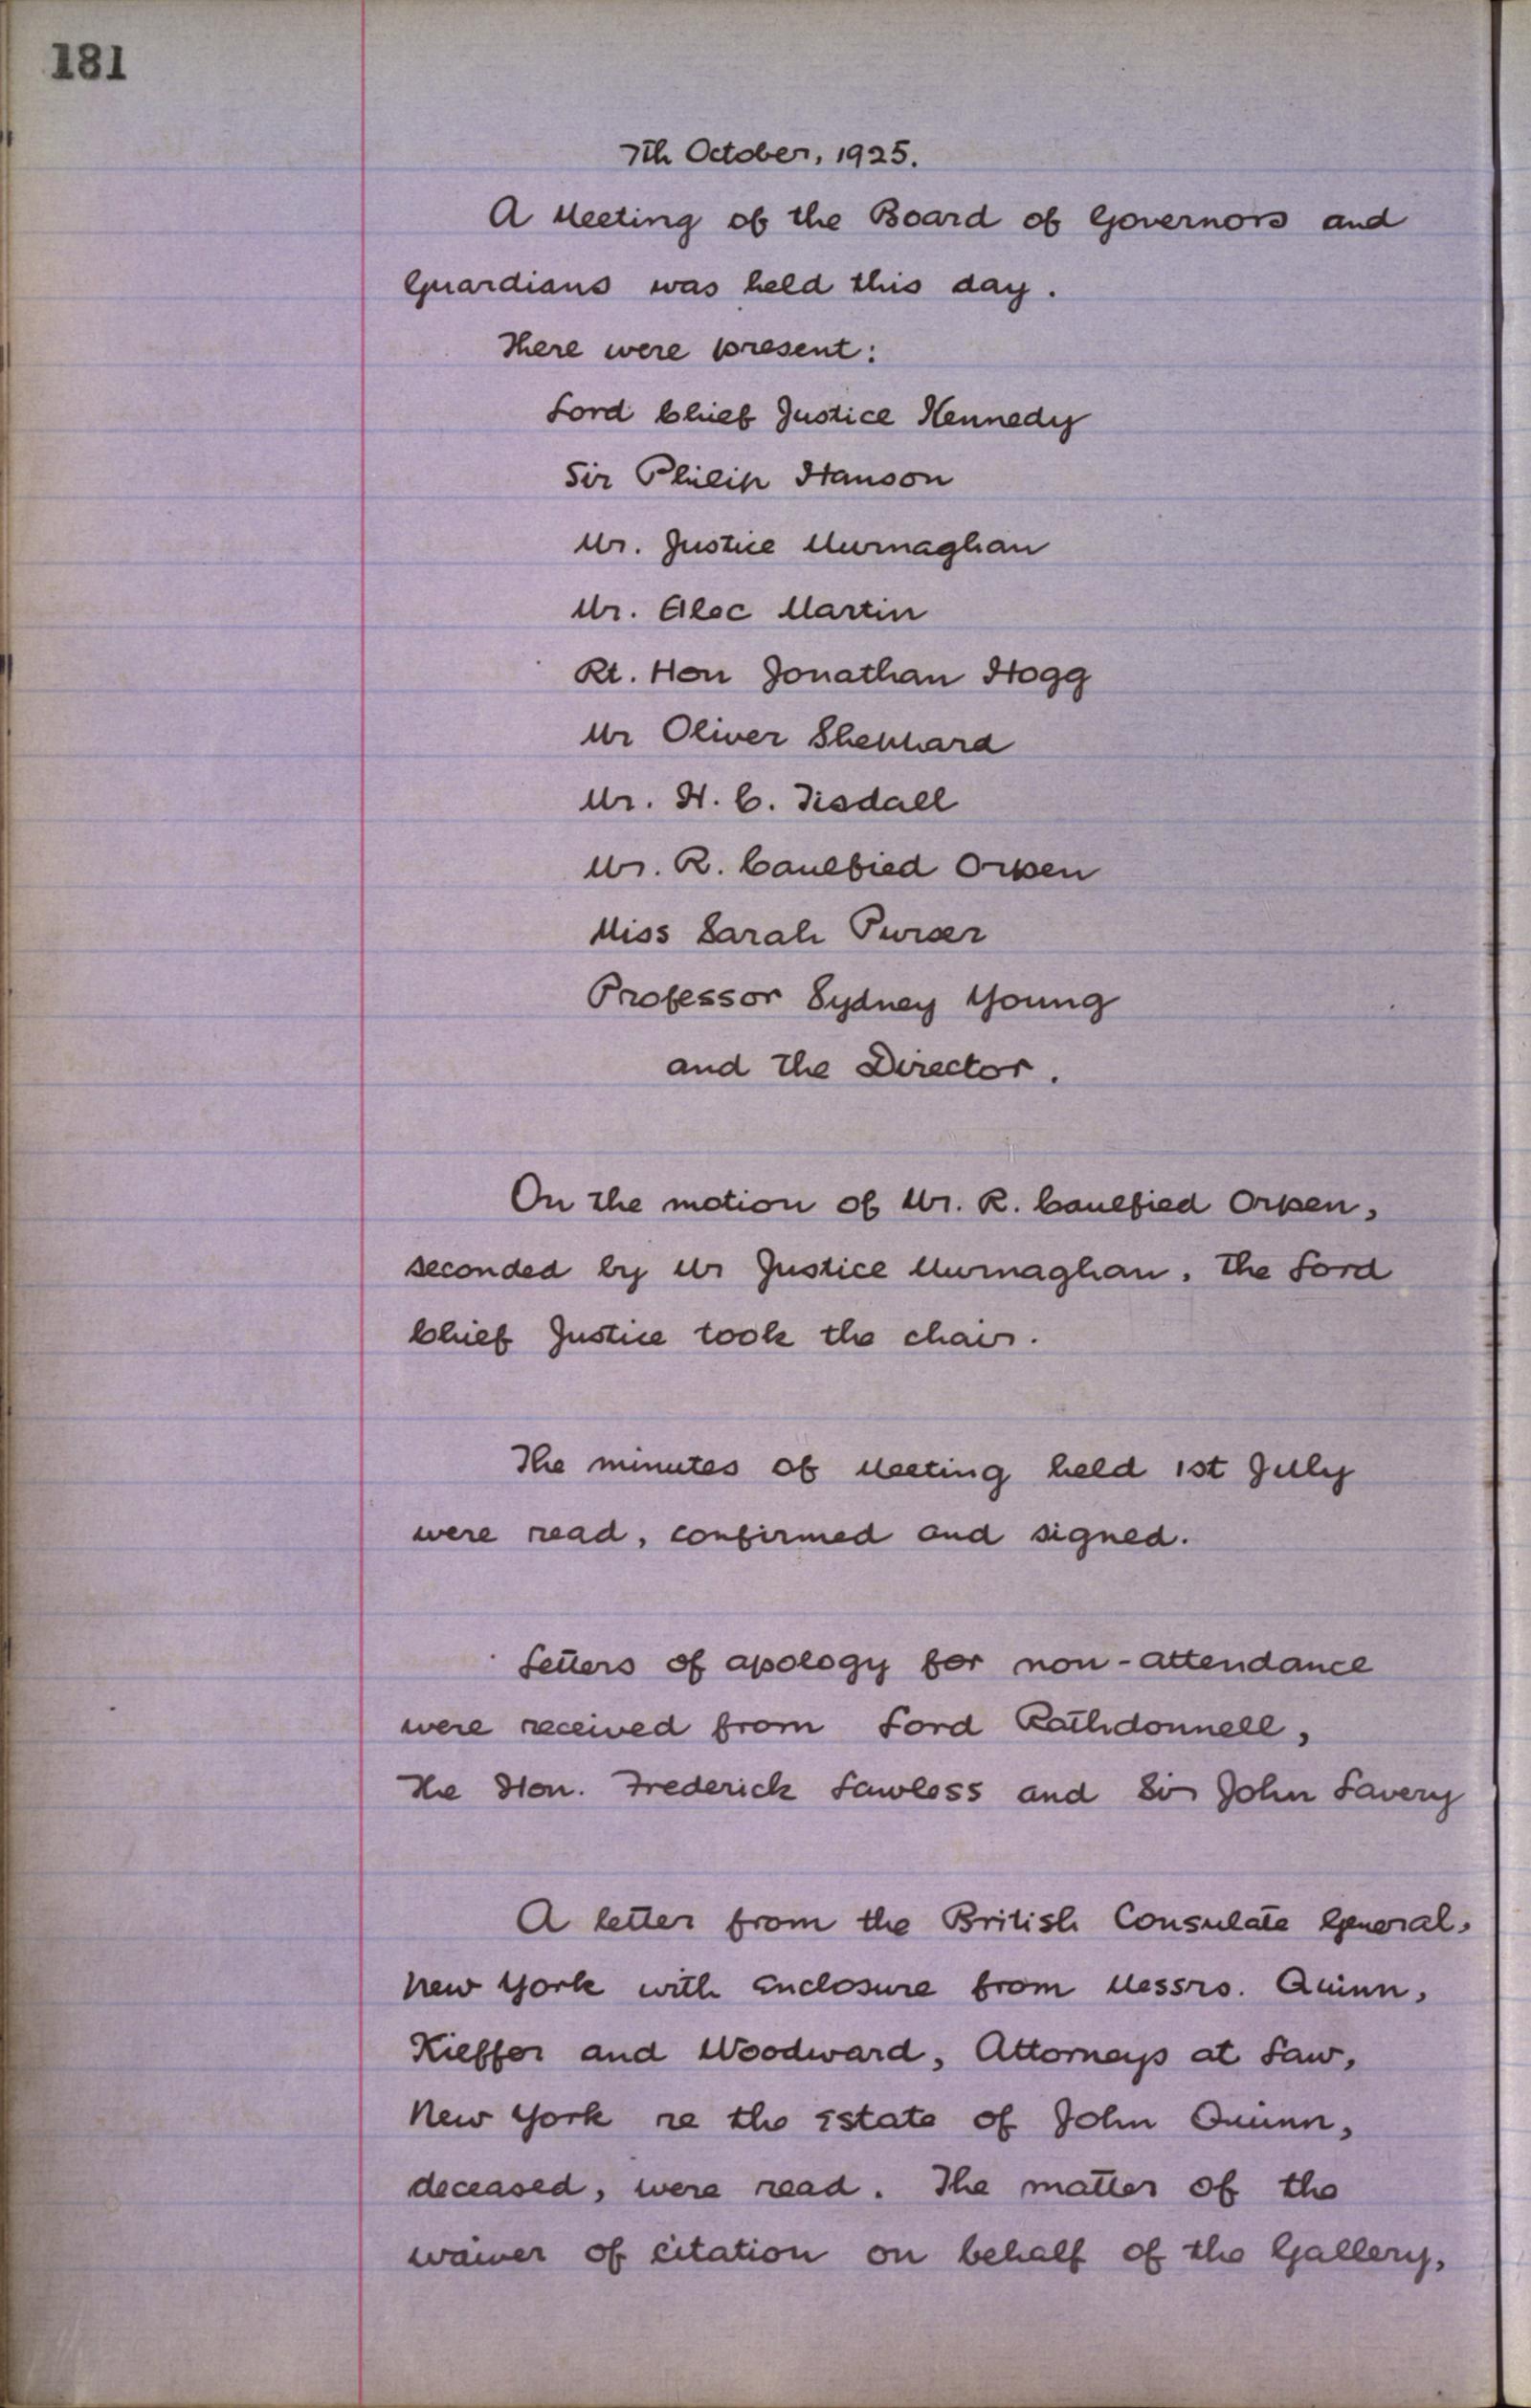 181
7th October, 1925.
A Meeting of the Board of Governors and
Guardians was held this day.
There were present:
Lord Chief Justice Kennedy
Sir Philip Hanson
Mr. Justice Murnaghan
Mr. Alec Martin
Rt. Hon Jonathan Hogg
Mr Oliver Sheppard
Mr. H. C. Tisdall
Mr. R. Caulfied Orpen
Miss Sarah Purser
Professor Sydney Young
and the Director.
On the motion of Mr. R. Caulfied Orpen,
seconded by Mr Justice Murnaghan, the Lord
Chief Justice took the chair.
The minutes of Meeting held 1st July
were read, confirmed and signed.
Letters of apology for non-attendance
were received from Lord Rathdonnell,
The Hon. Frederick Lawless and Sir John Lavery
A letter from the British Consulate General,
New York with enclosure from Messrs. Quinn,
Kieffer and Woodward, Attorneys at Law,
New York re the Estate of John Quinn,
deceased, were read. The matter of the
waiver of citation on behalf of the Gallery,